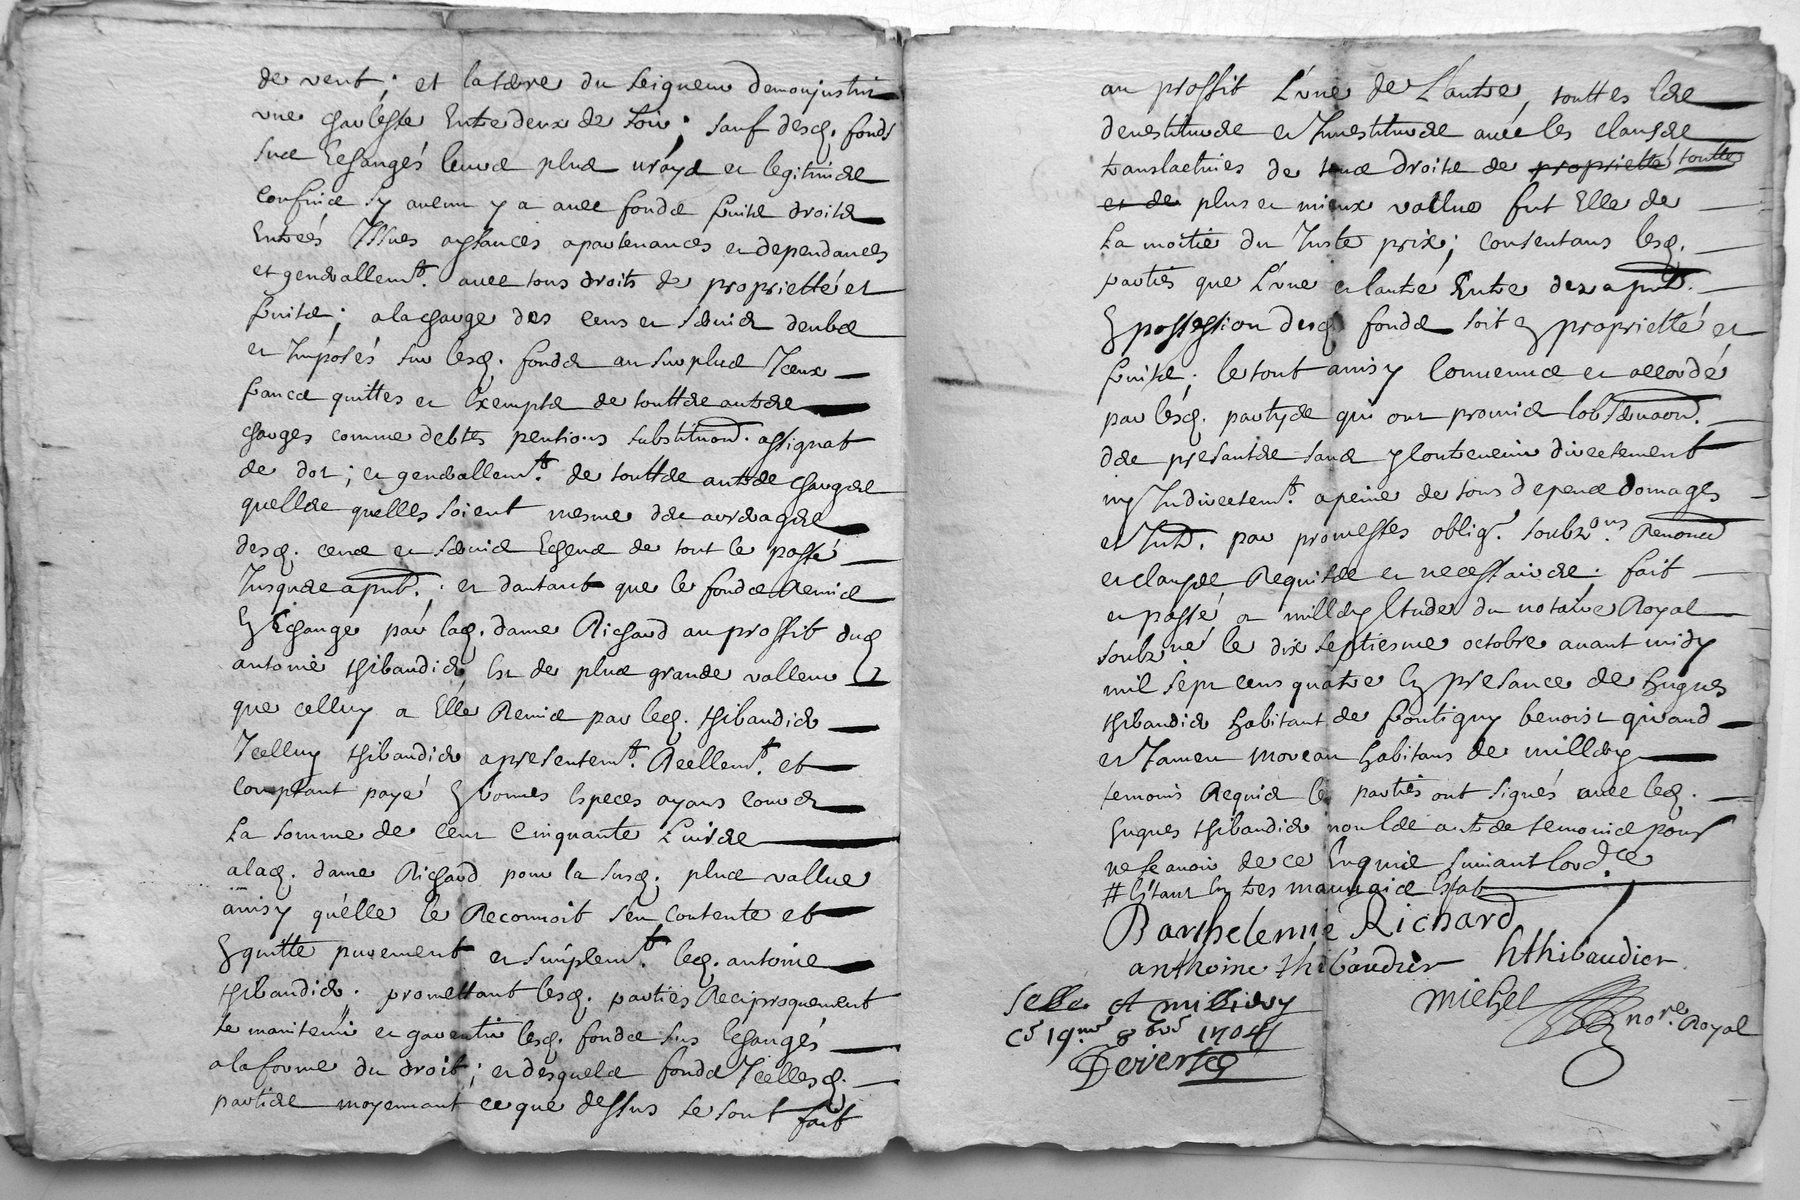 de vent; et la terre du seigneur demonjustin
une charleste Entredeux de soir; sauf desq. fonds
sus Eschangés leurs plus vrays et legitimes
confins sy aucun y a avec fonds fruits droits
Entrées Issues aysances apartenances et dependances
et generallemt. avec tous droits de proprietté et
fruits; alacharge des cens et servis deubs
et Imposés sur lesq. fonds au surplus Iceux
francs quittes et Exempts de touttes autres
charges comme debtes pentions substituons. assignat
de dot; et generallemt. de touttes autres charges
quelles quelles soient mesme des arrerages
desq. cens et servis Echeus de tout le passé
Jusques apnt.; et dautant que le fonds Remis
En Echange par laq. dame Richard au proffit dudq
antoine thibaudier, Est de plus grande valleur
que celluy a Elle Remis par leq. thibaudier
Icelluy thibaudier apresentemt. Reellemt. et
comptant payé En bonnes Especes ayans cours
La somme de cent Cinquante Livres
alaq. dame Richard pour la susq. plus vallue
ainsy qu'elle le Reconnoit s'en contente et
En quitte purement et simplemt. leq. antoine
thibaudier. promettant lesq. parties Reciproquement
se maintenir et garentir lesq. fonds sus Echangés
alaforme du droit; et desquels fonds Icelles q.
parties moyennant ce que dessus se sont fait
au proffit L'une de L'autre, touttes les
devestitures et Investitures avec les clauses
translactives de tous droits de proprietté toutte
et de plus et mieux vallue fut Elle de
La moitié du Juste prix; consentans lesq.
parties que L'une et lautre Entre dez apnt.
En possession desq. fonds soit En proprietté et
fruits; le tout ainsy convenus et accordé
par lesq. partyes qui ont promis lobservaon.
des presantes sans y contrevenir directement
ny Indirectemt. apeine de tous depens domages
et Intt. par promesses obligs. soubzons. Renoncd
et clauses Requises et necessaires; fait
et passé a millery Etude du notaire Royal
soubzné le dix septiesme octobre avant midy
mil sept cens quatre En presance de hugues
thibaudier habitant de frontigny benoist giraud
et Jamen moreau habitans de millery
temoins Requis les parties ont signés avec leq.
hugues thibaudier non les autres temoins pour
ne scavoir de ce Enquis suivant lordce
# Estant En tres mauvaice Estat
Barthelemie Richard
anthoine thibaudier hthibaudier
michel nore. Royal
Sellé A milliery
Ce 19me. 8bre 1704